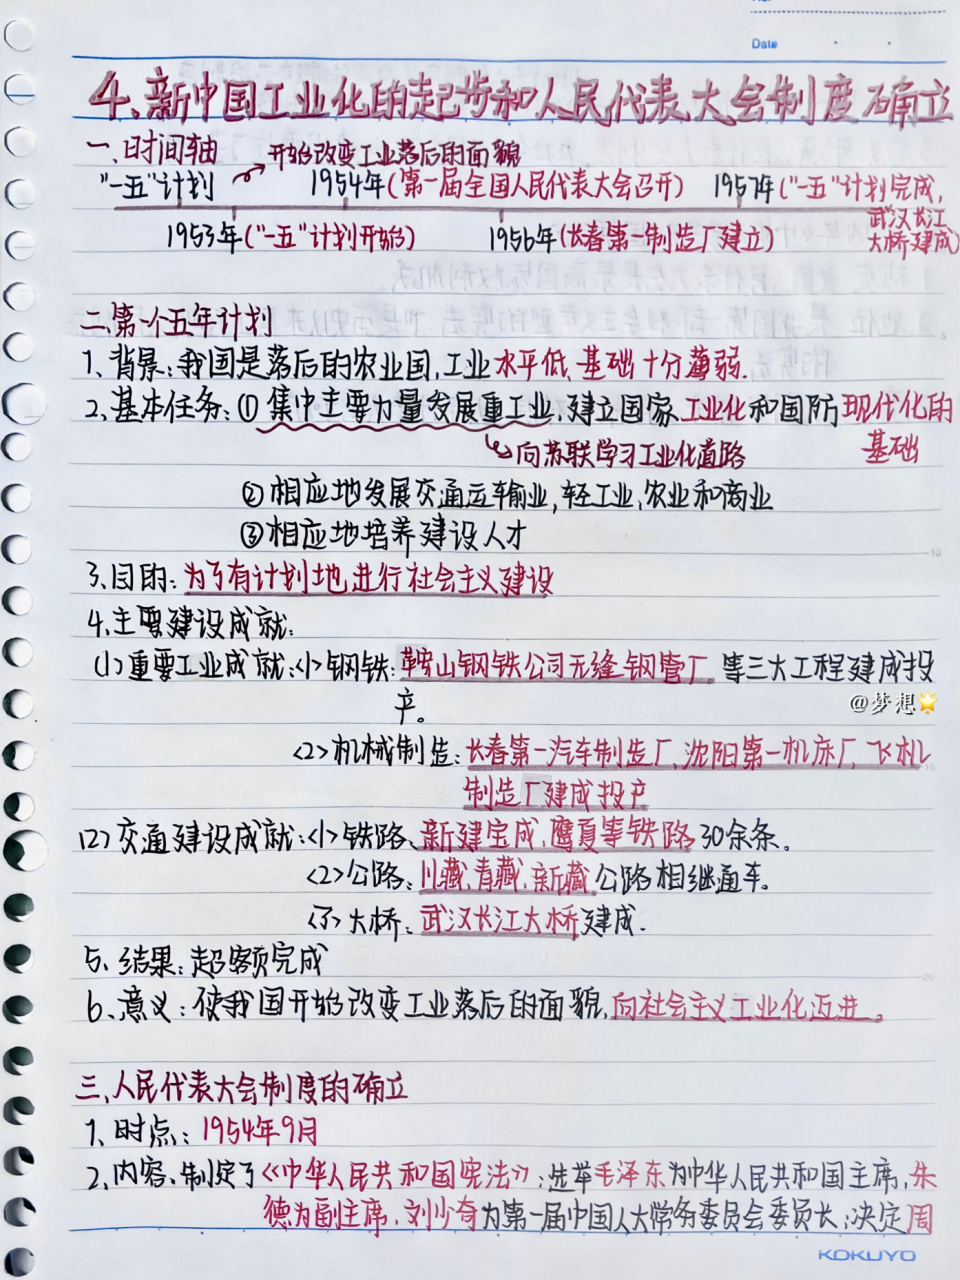 Date
4、新中国工业化的起步和人民代表大会制度确立
一、时间轴
开始改变工业落后的面貌
"一五"计划
1954年(第一届全国人民代表大会召开)
1957年("一五"计划完成,
武汉长江
大桥建成)
1953年("一五"计划开始)
1956年(长春第一制造厂建立)
二、第一个五年计划
1、背景:我国是落后的农业国,工业水平低、基础十分薄弱.
2、基本任务:①集中主要力量发展重工业,建立国家、工业化和国防现代化的
基础
向苏联学习工业化道路
②相应地发展交通运输业,轻工业、农业和商业
③相应地培养建设人才
3、目的:为了有计划地进行社会主义建设
4、主要建设成就:
(1)重要工业成就:<1>钢铁:鞍山钢铁公司无缝钢管厂等三大工程建成投
产。
@梦想🌟
<2>机械制造:长春第一汽车制造厂、沈阳第一机床厂、飞机
制造厂建成投产
(2)交通建设成就:<1>铁路、新建宝成、鹰厦等铁路30余条。
<2>公路:川藏、青藏、新藏公路相继通车。
<3>大桥:武汉长江大桥建成.
5、结果:超额完成
6、意义:使我国开始改变工业落后的面貌,向社会主义工业化迈进。
三、人民代表大会制度的确立
1、时点:1954年9月
2、内容、制定了《中华人民共和国宪法》;选举毛泽东为中华人民共和国主席,朱
德为副主席,刘少奇为第一届中国人大常务委员会委员长;决定周
KOKUYO